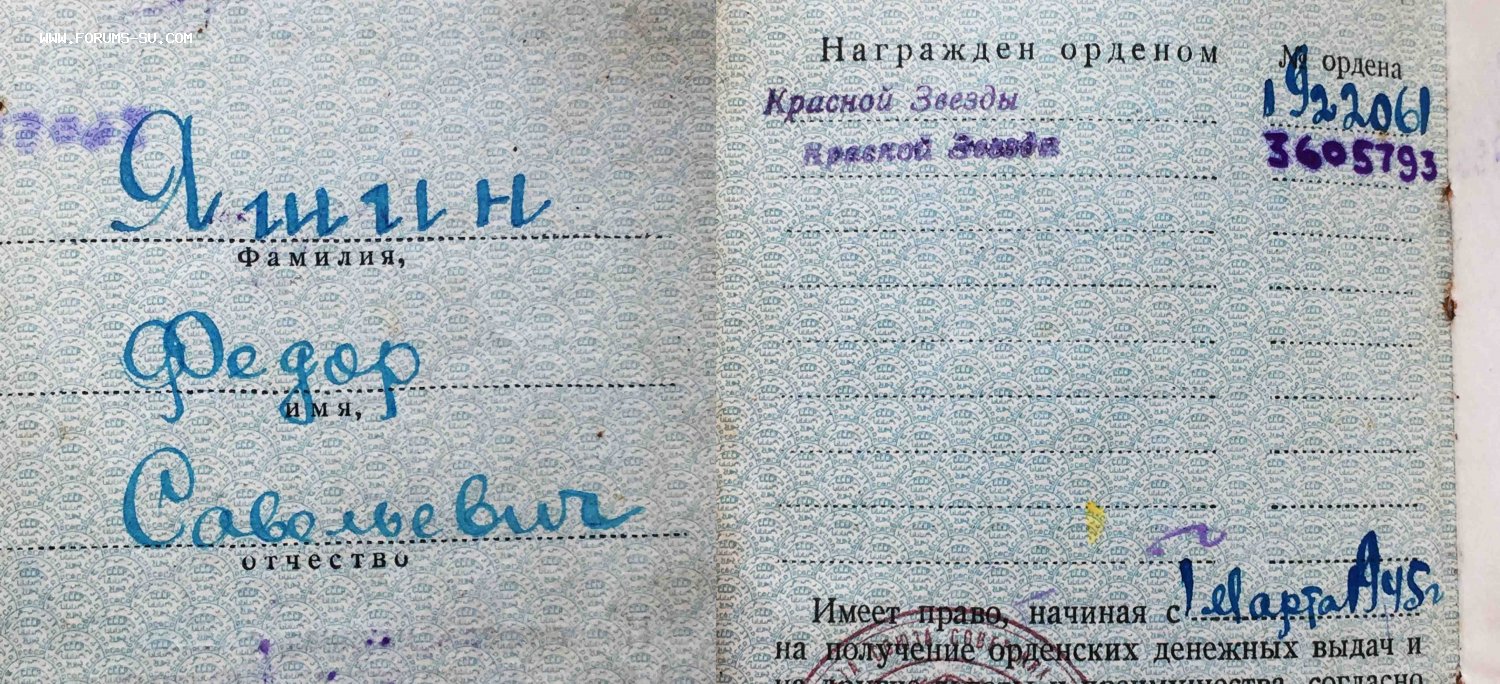 WWW.FORUMS-SU.COM
Яшин
Фамилия,
Федор
имя,
Савельевич
отчество
Награжден орденом № ордена
Красной Звезды 1922061
Красной Звезда 3605793
Имеет право, начиная с 1 Марта 1945г
на получение орденских денежных выдач и
согласно